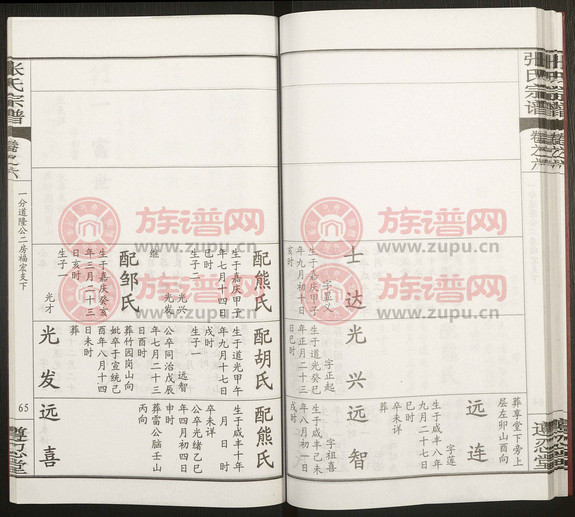 张氏宗谱
卷之六
遵忍堂
族谱网
www.zupu.cn
士达
字显义
生于嘉庆甲子
年九月初十日
亥时
光兴
字正起
生于道光癸巳
年正月二十三
日巳时
远智
字祖喜
生于咸丰己未
年八月初一日
戌时
葬享堂下旁上
层左卯山酉向
远连
字莲
生于咸丰八年
九月二十七日
卒未详
葬
族谱网
www.zupu.cn
配熊氏
生于嘉庆甲子
年七月十四日
巳时
生子一
光兴
继
光发
配邹氏
生于嘉庆癸亥
年三月二十三
日亥时
生子一
光才
配胡氏
生于道光甲午
年九月十七日
戌时
生子一
远智
公卒同治戊辰
年七月二十三
日酉时
葬竹园岗山向
妣卒于宣统己
酉年八月十四
日未时
葬
光发
配熊氏
生于咸丰十年
月 时
卒未详
公卒光绪乙巳
年四月初四日
申时
葬雷公脑壬山
丙向
远喜
张氏宗谱
卷之六
一分道隆公二房福宏支下
65
遵忍堂